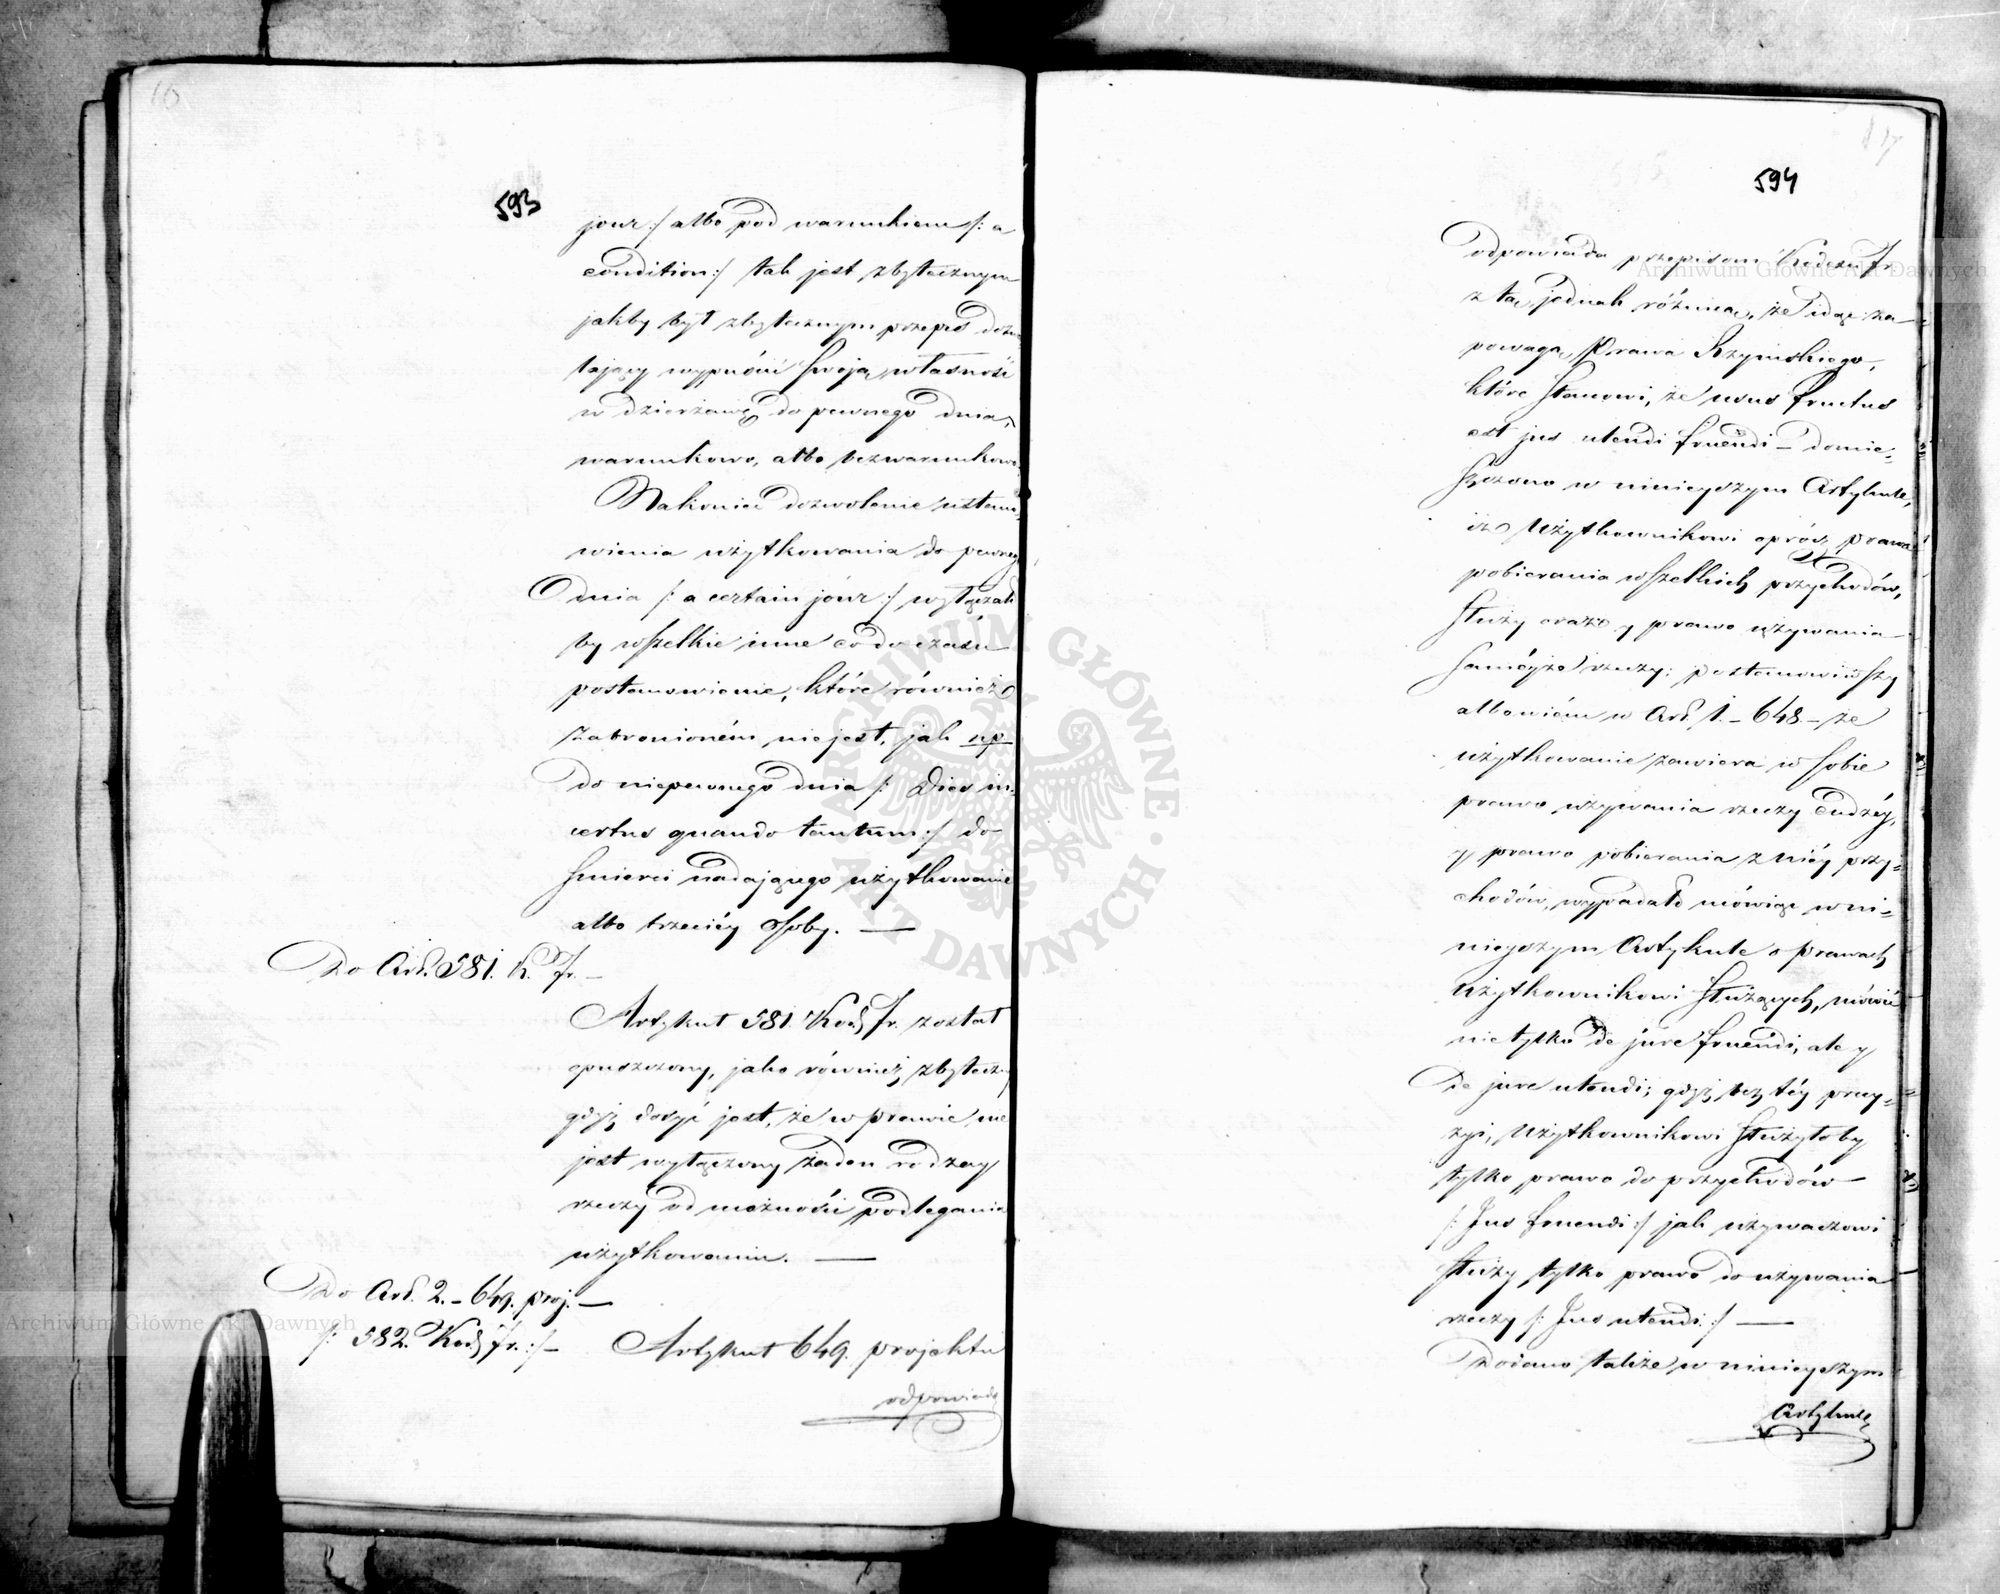 16
593
jour :/ albo pod warunkiem /: a
condition :/ tak jest zbytecznym
jakby był zbytecznym przepis dozwa
lający wypuścić swoją własność
w dzierżawę do pewnego dnia,
warunkowo, albo bezwarunkowo.
Nakoniec dozwolenie ustano,
wienia użytkowania do pewnego
dnia /: a certain jour :/ wyłączało
by wszelkie inne co do czasu
postanowienie, które również
zabronioném nie jest, jak np
do niepewnego dnia /: Dies in,
certus quando tantum :/ do
śmierci nadającego użytkowanie
albo trzeciéy osoby. —
Do Art. 581. K. Fr. —
Artykuł 581. Kod. Fr. został
opuszczony, jako również zbyteczny
gdyż dosyć jest, że w prawie nie
jest wyłączony żaden rodzay
rzeczy od możności podlegania
użytkowaniu. —
Do Art. 2. - 649. proj. —
/: 582. Kod. fr. :/ —
Artykuł 649. projektu
odpowiada
17
594
odpowiada przepisom Kodexu Fr.
z tą jednak różnicą, że idąc za
powagą Prawa Rzymskiego,
które stanowi, że usus fructus
est jus utendi fruendi — domie=
szczono w ninieyszym Artykule,
iż Użytkownikowi oprócz prawa
pobierania wszelkich przychodów,
służy oraz y prawo używania
saméyże rzeczy; postanowiwszy
albowiém w Art. 1. - 648 - że
użytkowanie zawiera w sobie
prawo używania rzeczy cudzéy,
y prawo pobierania z niéy przy=
chodów, wypadało mówiąc w ni=
nieyszym Artykule o prawach
Użytkownikowi służących, mówić
nie tylko de jure fruendi, ale y
de jure utendi; gdyż bez téy precy=
zyi, Użytkownikowi służyłoby
tylko prawo do przychodów
/: Jus fruendi :/ jak używaczowi
służy tylko prawo do używania
rzeczy /: Jus utendi :/ —
Dodano także w ninieyszym
Artykule
Archiwum Główne Akt Dawnych
Archiwum Główne Akt Dawnych
ARCHIWUM GŁÓWNE AKT DAWNYCH